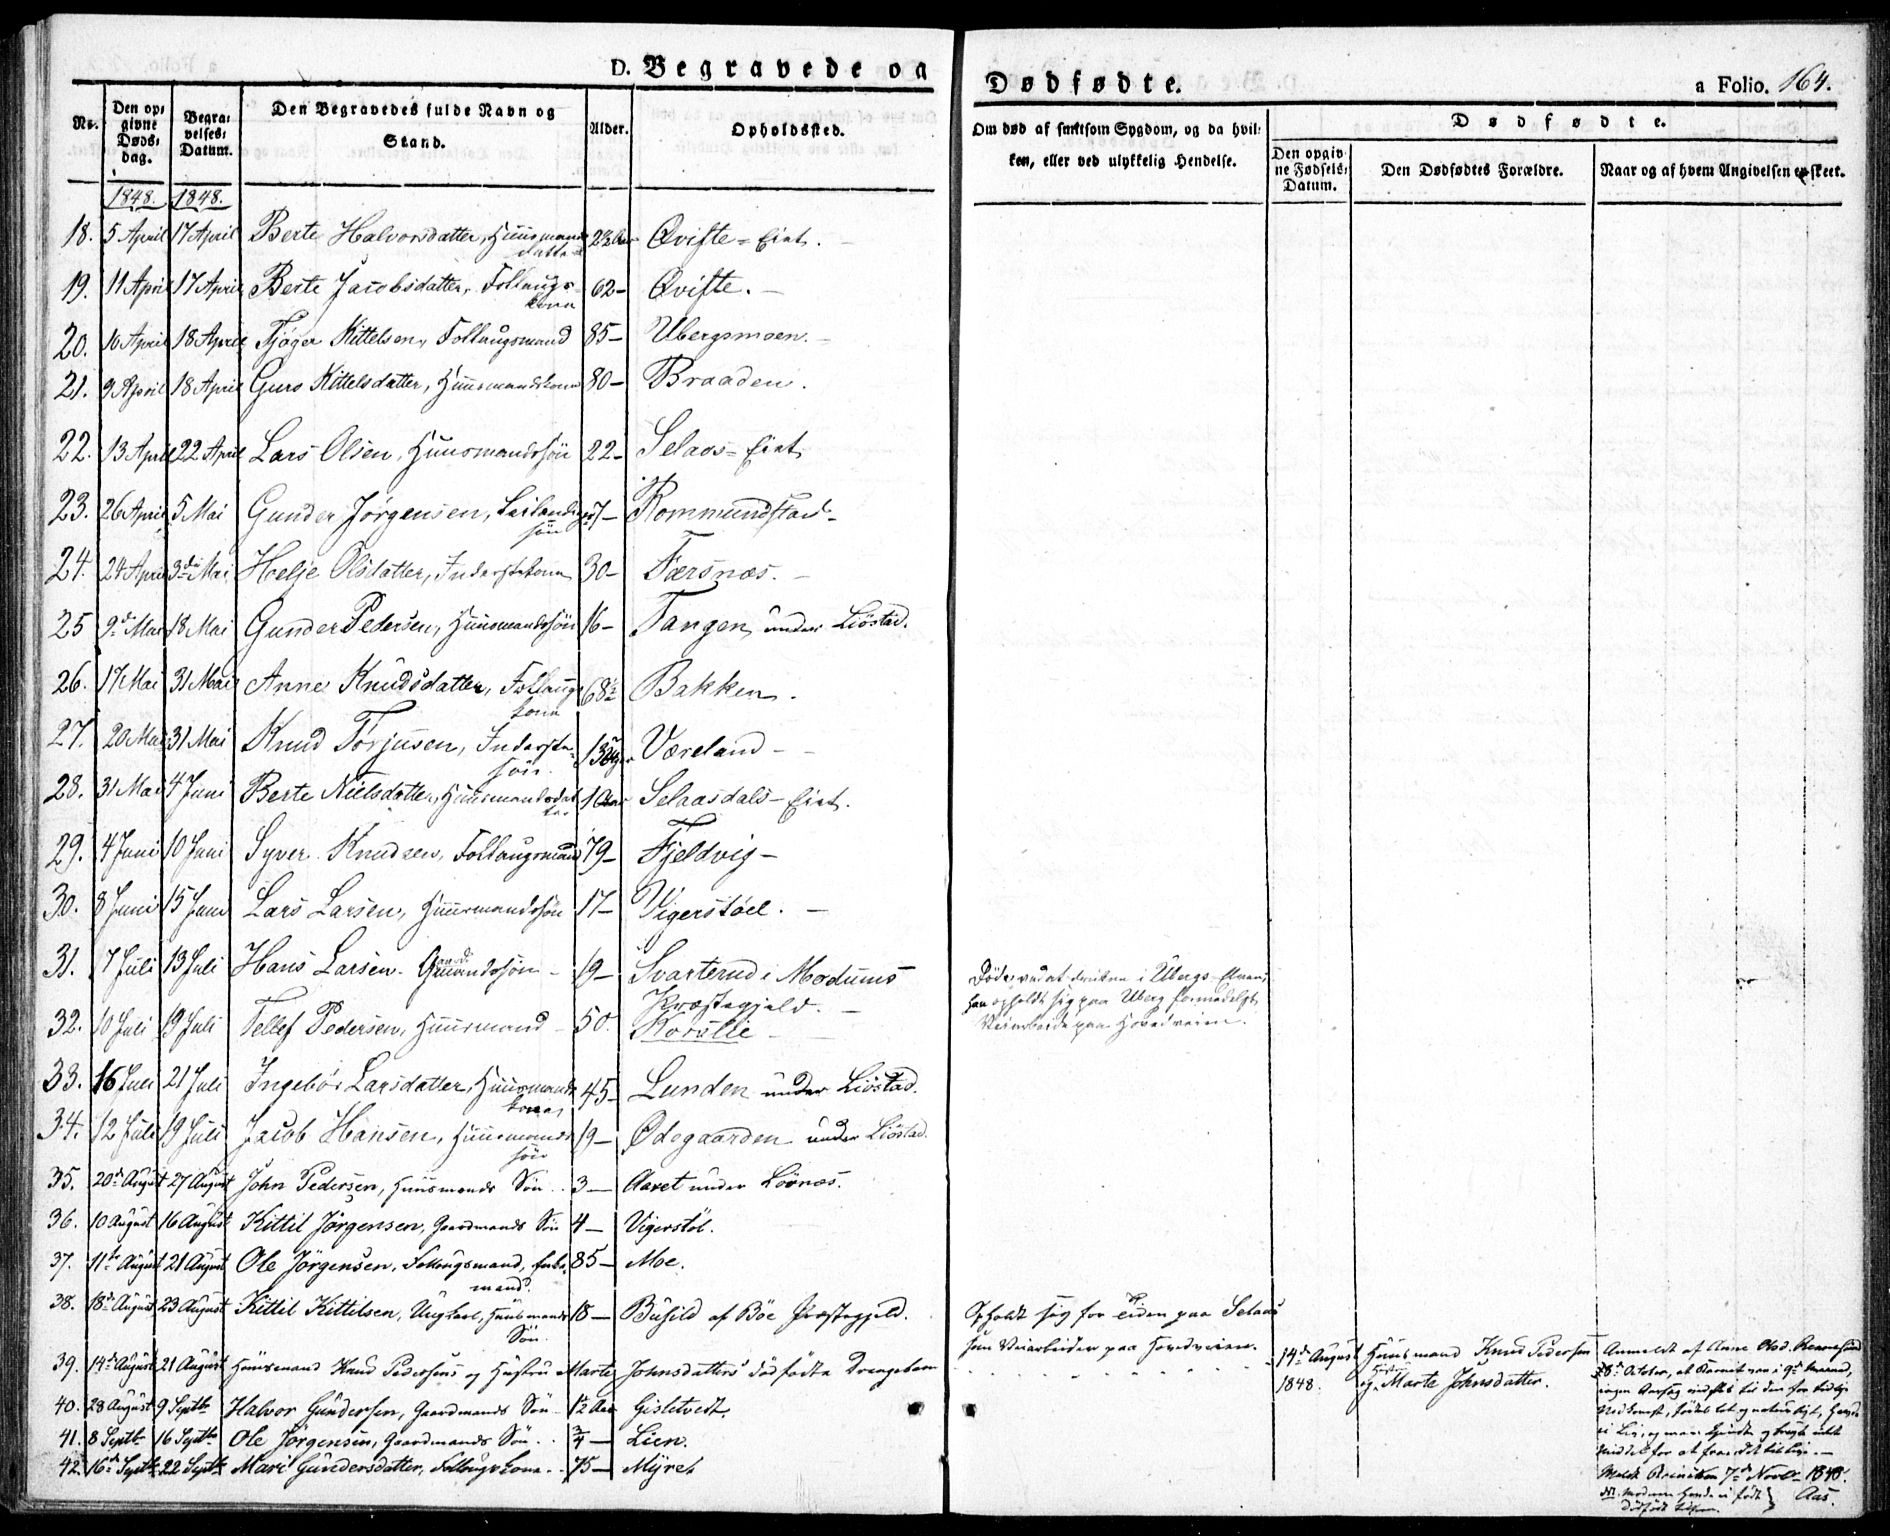 D. Begravede og
Dødfødte.
a Folio. 164.
No.
Den opgivne Døds-dag.
Begravelses-Datum.
Den Begravedes fulde Navn og Stand.
Alder.
Opholdssted.
Om død af smitsom Sygdom, og da hvilken, eller ved ulykkelig Hendelse.
Dødfødte.
Den opgivne Fødsels-Datum.
Den Dødfødtes Forældre.
Naar og af hvem Angivelsen er skeet.
1848. 1848.
18. 5 April 17 April Berte Halvorsdatter, Huusmandsdatter Qvifte-Eiet.
19. 11 April 17 April Berte Jacobsdatter, Follaugskone 62- Qvifte.
20. 16 April 18 April Tjøger Kittelsen, Follaugsmand 85- Ubergsmoen.
21. 9 April 18 April Guro Kittelsdatter, Huusmandskone 80- Braaden.
22. 13 April 22 April Lars Olsen, Huusmandssön 22- Selaas-Eiet
23. 26 April 5 Mai Gunder Jörgensen, Leilændingssön 7- Rommundstad-
24. 24 April 3die Mai Helje Olsdatter, Inderstekone 30- Færsnæs.
25 9de Mai 18 Mai Gunder Pedersen, Huusmandssön 16- Tangen under Liöstad.
26. 17 Mai 31 Mai Anne Knudsdatter, Follaugskone 68½ Bakken.
27. 20 Mai 31 Mai Knud Torjusen, Inderstesön Væreland-
28. 31 Mai 4 Juni Berte Nielsdatter, Huusmandsdatter 1 Aar Selaasdals-Eiet.
29. 4 Juni 10 Juni Syver Knudsen, Follaugsmand 79- Fjeldvig-
30. 8 Juni 15 Juni Lars Larsen, Huusmandssön 17- Vigerstöel.
31. 7 Juli 13 Juli Hans Larsen- Gaardmandssön- 19- Svarterud i Modums Præstegjeld. Döde ved at drukne i Ubergs-Elven, han opholdt sig paa Uberg formedelst Veiarbeide paa Hovedveien.
32. 10 Juli 19 Juli Tellef Pedersen, Huusmand 50. Korslie
33. 16 Juli 21 Juli Ingebör Larsdatter, Huusmandskone 45- Lunden under Liöstad.
34. 12 Juli 19 Juli Jacob Hansen, Huusmandssön 19- Ødegaarden under Liöstad.
35. 20de August 27 August John Pedersen, Huusmands Sön.. 3- Aaset under Lövnæs.
36. 10 August 16 August Kittil Jörgensen, Gaardmands Sön 4- Vigerstöl.
37. 11te August 21 August Ole Jörgensen, Follougsmand, Enkemand. 85- Moe.
38. 18de August 23 August Kittil Kittilsen, Ungkarl, Huusmands Sön. 18- Busild af Böe Præstegjeld. Opholdt sig for Tiden paa Selaas som Veiarbeider paa Hovedveien.
39. 14de August 21 August Huusmand Knud Pedersens og Hustru Marte Johnsdatters dödfödte Drengebarn
14de August 1848. Huusmand Knud Pedersen og Hustru Marte Johnsdatter.
Anmeldt af Anne Olsd.
8de October, at Barnet var i
40. 28 August 9 Septbr Halvor Gundersen, Gaardmands Sön 12 Aar Gisletvedt.
41. 8 Septbr 16 Septbr Ole Jörgensen, Gaardmands Sön.. ¾- Lien.
42. 16de Septbr 22 Septbr Mari Gundersdatter, Follougskone.. 75- Myret
7de Novbr 1848.
Aas.